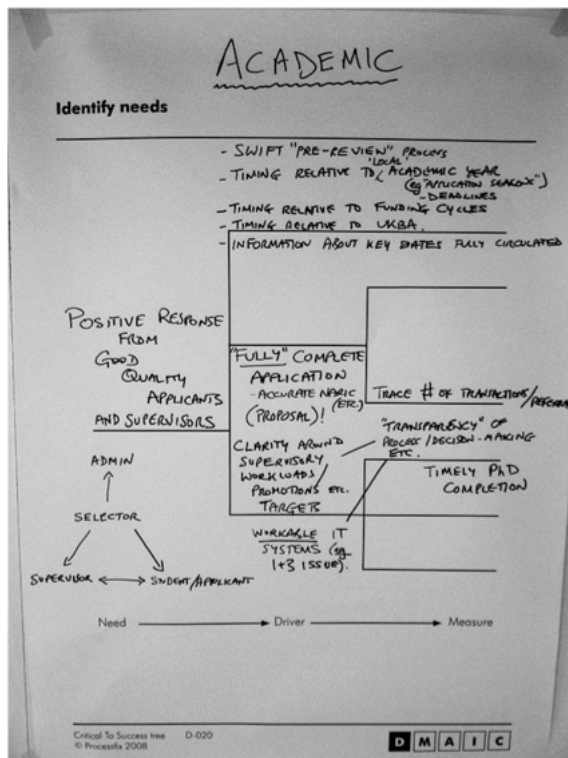 ACADEMIC
Identify needs
- SWIFT "PRE-REVIEW" PROCESS
'LOCAL'
- TIMING RELATIVE TO (ACADEMIC YEAR
(eg "APPLICATION SEASON")
- DEADLINES
- TIMING RELATIVE TO FUNDING CYCLES
- TIMING RELATIVE TO UKBA.
- INFORMATION ABOUT KEY DATES FULLY CIRCULATED
POSITIVE RESPONSE
FROM
GOOD
QUALITY
APPLICANTS
AND SUPERVISORS
"FULLY" COMPLETE
APPLICATION
- ACCURATE NARIC
(ETC.)
(PROPOSAL)!
TRACE # OF TRANSACTIONS/REFERRA
CLARITY AROUND
SUPERVISORY
WORKLOADS
PROMOTIONS ETC.
TARGETS
"TRANSPARENCY" OF
PROCESS/DECISION-MAKING
ETC.
TIMELY PhD
COMPLETION
WORKABLE IT
SYSTEMS (eg
1+3 ISSUE).
ADMIN
SELECTOR
SUPERVISOR
STUDENT/APPLICANT
Need
Driver
Measure
Critical To Success tree D-020
© Processfix 2008
D M A I C